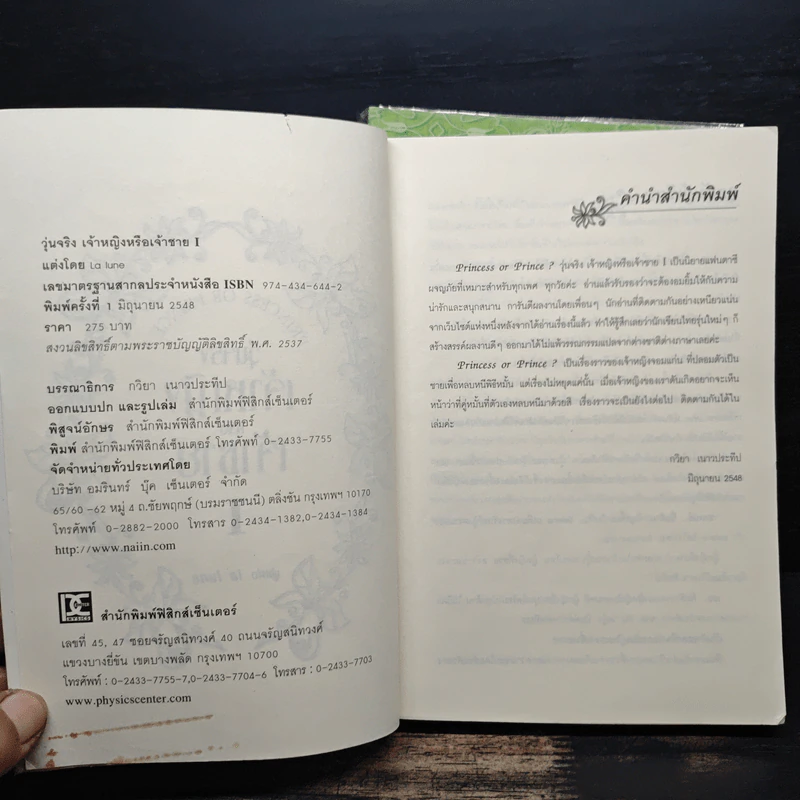 วุ่นจริง เจ้าหญิงหรือเจ้าชาย I
แต่งโดย La lune
เลขมาตรฐานสากลประจำหนังสือ ISBN 974-434-644-2
พิมพ์ครั้งที่ 1 มิถุนายน 2548
ราคา 275 บาท
สงวนลิขสิทธิ์ตามพระราชบัญญัติลิขสิทธิ์ พ.ศ. 2537
บรรณาธิการ กวิยา เนาวประทีป
ออกแบบปก และรูปเล่ม สำนักพิมพ์ฟิสิกส์เซ็นเตอร์
พิสูจน์อักษร สำนักพิมพ์ฟิสิกส์เซ็นเตอร์
พิมพ์ สำนักพิมพ์ฟิสิกส์เซ็นเตอร์ โทรศัพท์ 0-2433-7755
จัดจำหน่ายทั่วประเทศโดย
บริษัท อมรินทร์ บุ๊ค เซ็นเตอร์ จำกัด
65/60 -62 หมู่ 4 ถ.ชัยพฤกษ์ (บรมราชชนนี) ตลิ่งชัน กรุงเทพฯ 10170
โทรศัพท์ 0-2882-2000 โทรสาร 0-2434-1382,0-2434-1384
http://www.naiin.com
สำนักพิมพ์ฟิสิกส์เซ็นเตอร์
เลขที่ 45, 47 ซอยจรัญสนิทวงศ์ 40 ถนนจรัญสนิทวงศ์
แขวงบางยี่ขัน เขตบางพลัด กรุงเทพฯ 10700
โทรศัพท์ : 0-2433-7755-7,0-2433-7704-6 โทรสาร : 0-2433-7703
www.physicscenter.com
คำนำสำนักพิมพ์
Princess or Prince ? วุ่นจริง เจ้าหญิงหรือเจ้าชาย I เป็นนิยายแฟนตาซี
ผจญภัยที่เหมาะสำหรับทุกเพศ ทุกวัยค่ะ อ่านแล้วรับรองว่าจะต้องอมยิ้มให้กับความ
น่ารักและสนุกสนาน การันตีผลงานโดยเพื่อนๆ นักอ่านที่ติดตามกันอย่างเหนียวแน่น
จากเว็บไซต์แห่งหนึ่งหลังจากได้อ่านเรื่องนี้แล้ว ทำให้รู้สึกเลยว่านักเขียนไทยรุ่นใหม่ๆ ก็
สร้างสรรค์ผลงานดีๆ ออกมาได้ไม่แพ้วรรณกรรมแปลจากต่างชาติต่างภาษาเลยค่ะ
Princess or Prince ? เป็นเรื่องราวของเจ้าหญิงจอมแก่น ที่ปลอมตัวเป็น
ชายเพื่อหลบหนีพิธีหมั้น แต่เรื่องไม่หยุดแค่นั้น เมื่อเจ้าหญิงของเราดันเกิดอยากจะเห็น
หน้าว่าที่คู่หมั้นที่ตัวเองหลบหนีมาด้วยสิ เรื่องราวจะเป็นยังไงต่อไป ติดตามกันได้ใน
เล่มค่ะ
กวิยา เนาวประทีป
มิถุนายน 2548